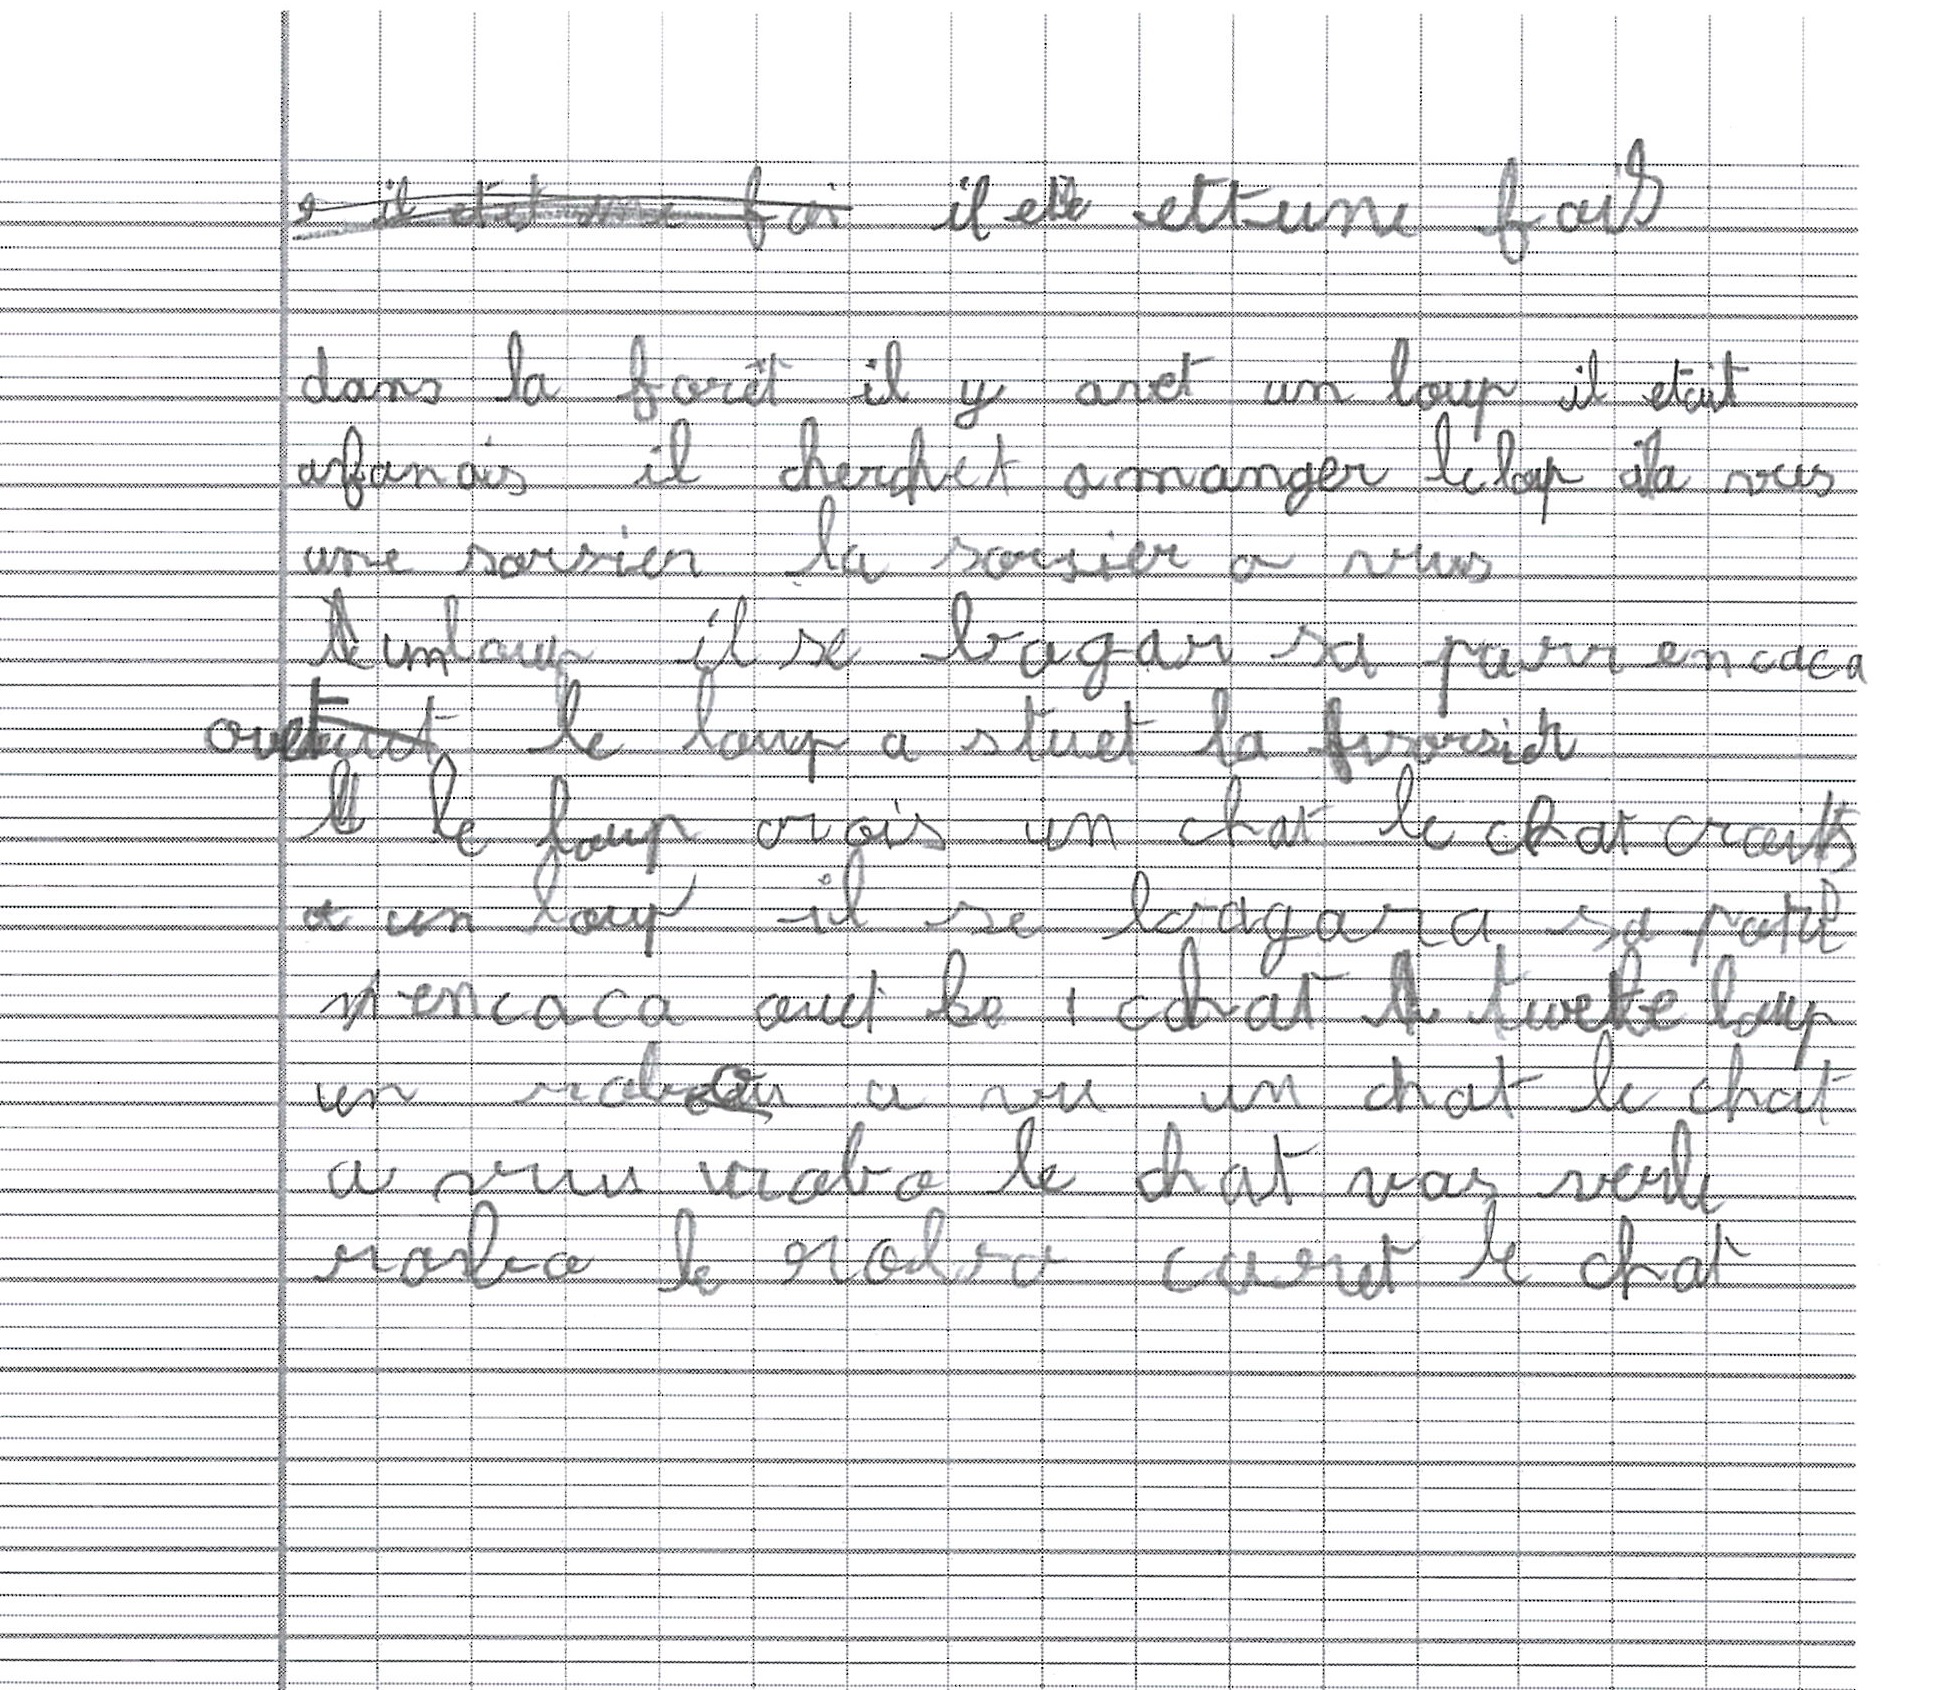 il ett une fois
dans la forêt il y avet un loup il etait
afanais il cherchet a manger le loup ila vus
une sorsier la sorsier a vus
un loup il se bagar sa parr encaca
ouet le loup a stuet la sorsier
le loup crois un chat le chat craits
un loup il se bagara sa patit
encaca ouet le chat tuet le loup
un robo a vu un chat le chat
a vuu robo le chat vas verle
roabo le robo couret le chat